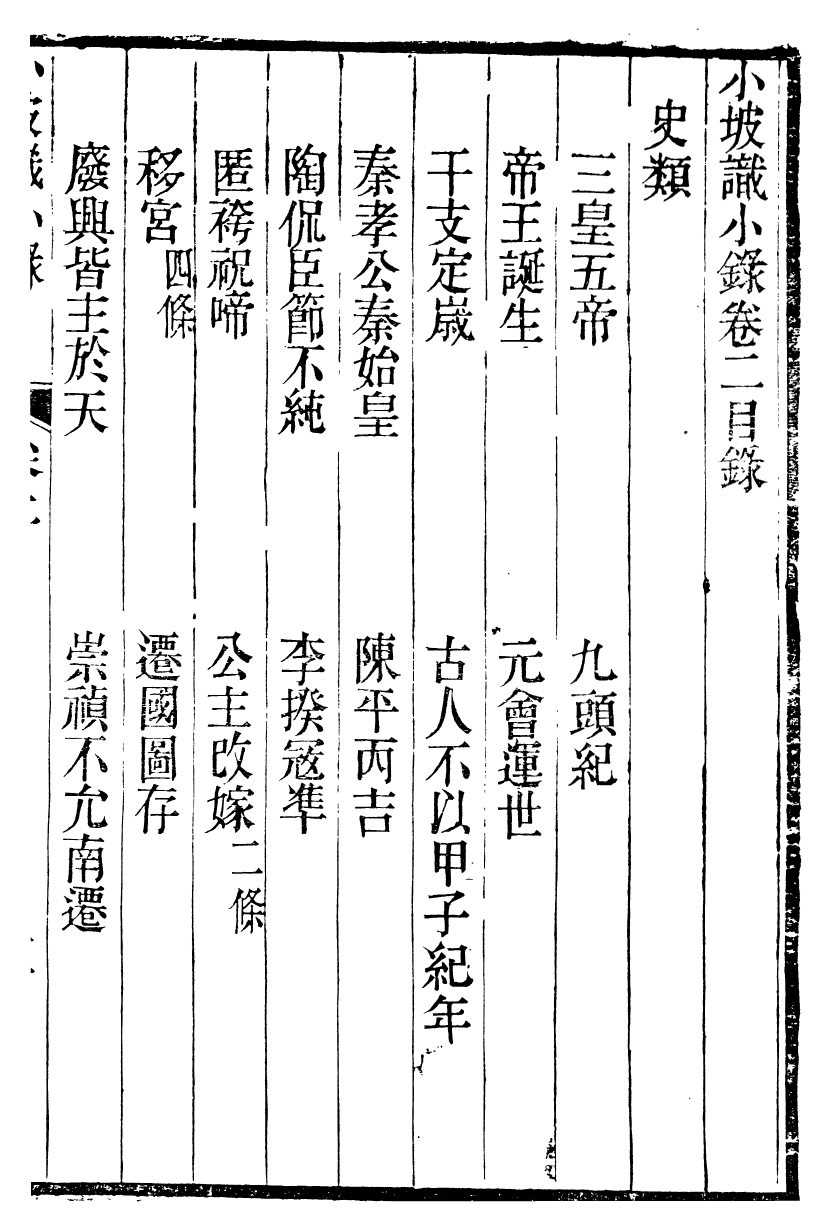 小坡識小錄卷二目錄
史類
三皇五帝　九頭紀
帝王誕生　元會運世
干支定歲　古人不以甲子紀年
秦孝公秦始皇　陳平丙吉
陶侃臣節不純　李揆寇準
匿袴祝啼　公主改嫁二條
移宮四條　遷國圖存
廢興皆主於天　崇禎不允南遷
小坡識小錄